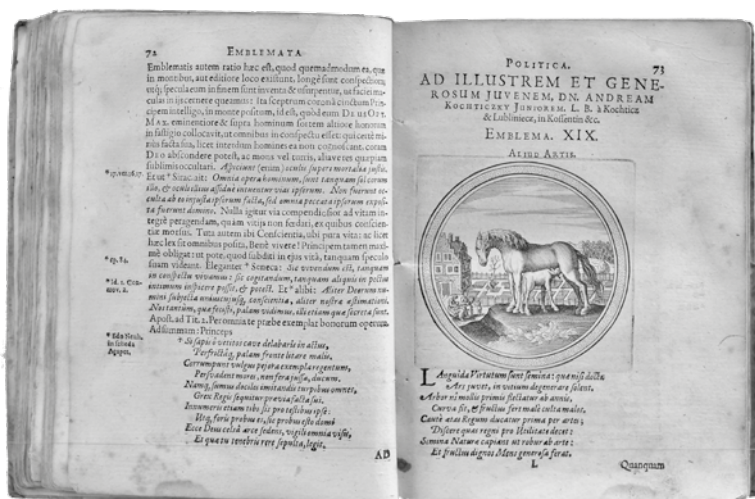 72 EMBLEMATA
Emblematis autem ratio hæc est, quod quemadmodum ea, quæ
in montibus, aut editiore loco existunt, longè sint conspectiora,
utq; specula eum in finem sunt inventa & usurpentur, ut faciei maculas
in iis cernere queamus: Ita sceptrum coronâ cinctum Principem
intelligo, in monte positum, id est, quod eum DEUS OPT.
MAX. eminentiore & supra hominum sortem altiore honorum
in fastigio collocavit, ut omnibus in conspectu esset: qui certè minùs
facta sua, licet interdum homines ea non cognoscant, coram
DEO abscondere potest, ac mons vel turris, aliave res quæpiam
sublimis occultari. Aspiciunt (enim) oculis superi mortalia justis.
Et ut Sirac. ait: Omnia opera hominum, sunt tanquam sol coram
illo, & oculi ellius assiduè intuentur vias ipsorum. Non fuerunt occulta
ab eo injusta ipsorum facta, sed omnia peccata ipsorum exposita
fuerunt domino. Nulla igitur via compendiosior ad vitam integrè
peragendam, quàm vitijs non fœdari, ex quibus conscientiæ
morsus. Tuta autem ibi Conscientia, ubi pura vita: ac licet
hæc lex sit omnibus posita, Benè vivere! Principem tamen maximè
obligat: ut pote, quod subditi in ejus vitâ, tanquam speculo
suam videant. Eleganter Seneca: Sic vivendum est, tanquam
in conspectu vivamus: sic cogitandum, tanquam aliquis in pectus
intimum inspicere possit, & potest. Et alibi: Aliter Deorum numini
subjecta uniuscujusq; conscientia, aliter nostræ æstimationi.
Nos tantum, quæ fecisti, palam vidimus, illi etiam quæ secreta sunt.
Apost. ad Tit. 2. Per omnia te præbe exemplar bonorum operum.
Ad summam: Princeps
Si sapis ô vetitos cave delabaris in actus,
Perfrictâq; palam fronte litare malis.
Corrumpunt vulgus pejora exempla regentum,
Persvadent mores, non fera jussa, ducum.
Namq; sumus dociles imitandis turpibus omnes,
Grex Regis sequitur prævia facta sui.
Innumeris etiam tibi sis pro testibus ipse:
Utq; foris probus es, sic probus esto domi
Ecce Deus celsâ arce sedens, vigil omnia visit,
Et quæ tu tenebris rere sepulta, legit.
AD
POLITICA. 73
AD ILLUSTREM ET GENEROSUM
JUVENEM, DN. ANDREAM
KOCHTICZKY JUNIOREM. L. B. à Kochticz
& Lubliniecz, in Kossentin &c.
EMBLEMA. XIX.
ALIUD ARTIS.
LAnguida Virtutum sunt semina: quæ nisi docta
Ars juvet, in vitium degenerare solent.
Arbor ni mollis primis flectatur ab annis,
Curva sit, & fructus fert malè culta malos.
Cautè ætas Regum ducatur prima per artes;
Discere quas regni pro Utilitate decet:
Semina Naturæ capiant ut robur ab arte:
Et fructus dignos Mens generosa ferat.
L Quanquam